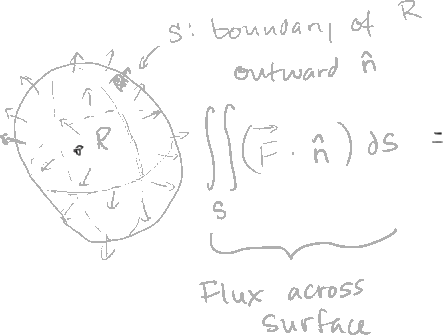 S: boundary of R
outward n̂
R
∬_S (F⃗ · n̂) dS =
Flux across
surface